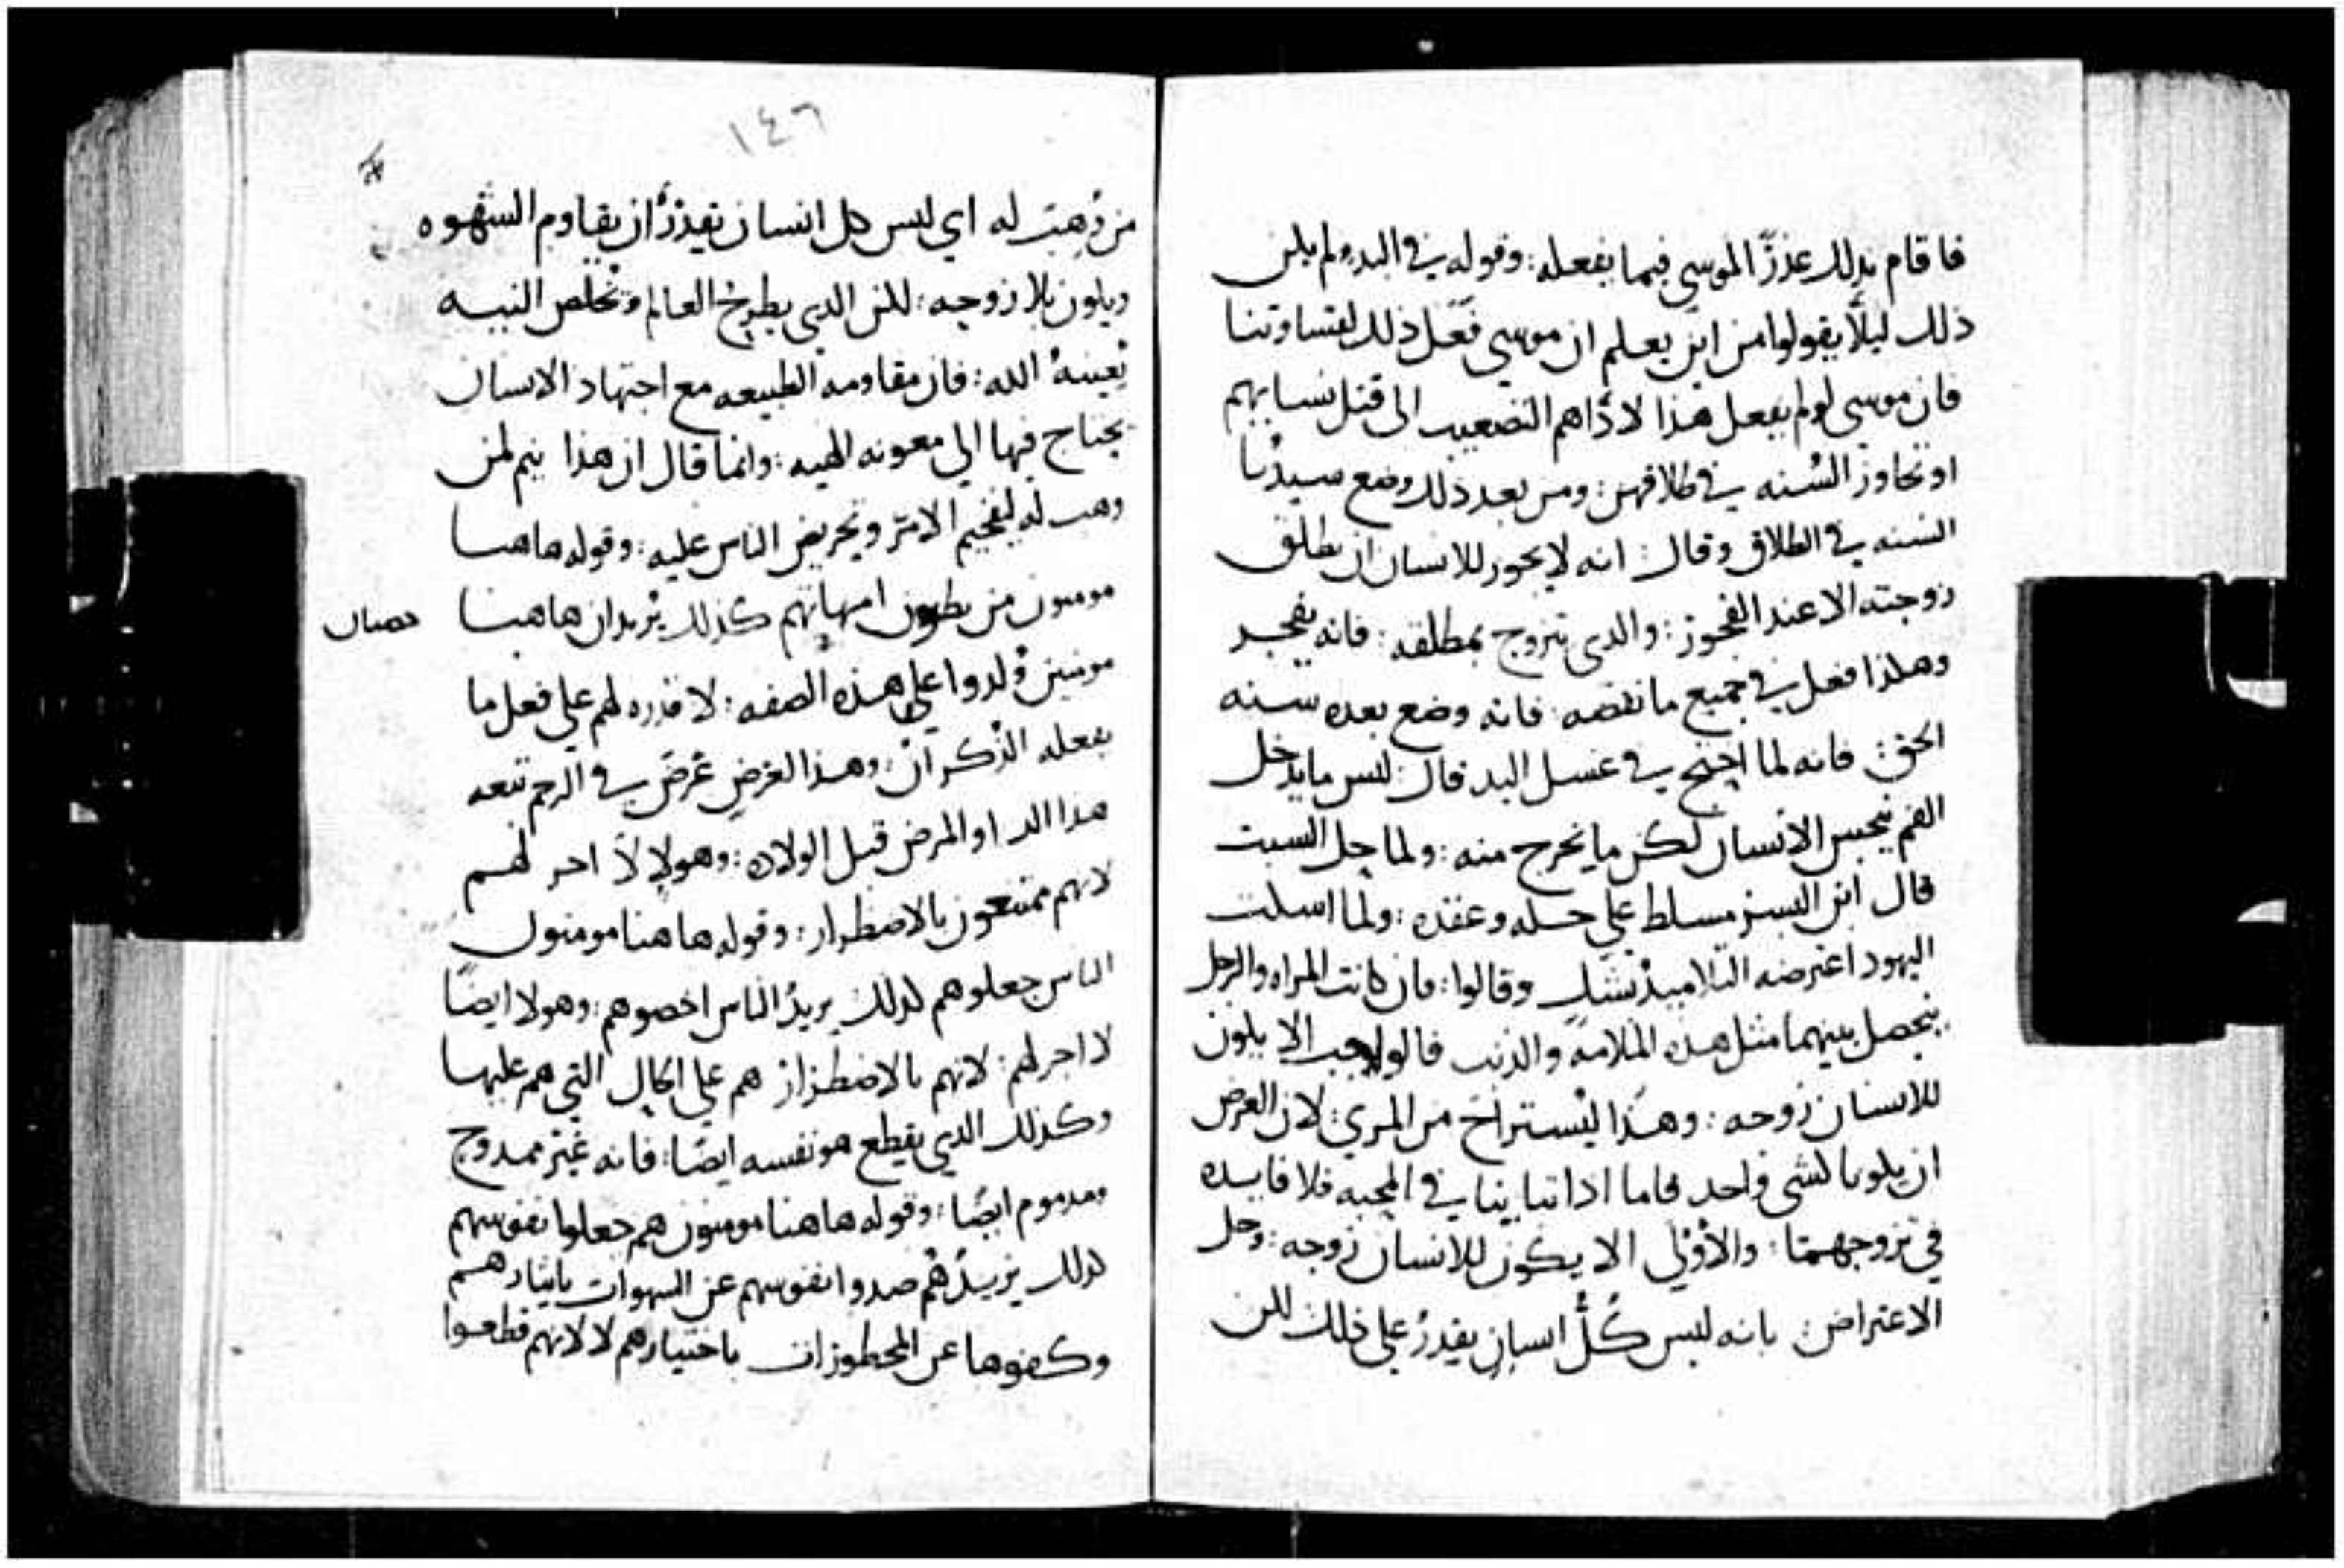 فاقام بذلك عذرًا لموسي فيما يفعله: وقوله في البدو لم يكن
ذلك ليلًا يقولوا من اين يعلم ان موسي فعل ذلك لقساوتنا
فان موسي لو لم يفعل هذا لادّاهم التصعيب الى قتل نسايهم
او تجاوز السُنه في طلاقهن: ومن بعد ذلك وضع سيدنا
السنه في الطلاق وقال: انه لا يجوز للانسان ان يطلق
زوجته الا عند الفجوز: والدى تتزوج بمطلقه: فانه يفجر
وهكذا فعل في جميع ما نقضه: فانه وضع بعده سنه
الحق: فانه لما احتج في غسل اليد قال: ليس ما يدخل
الفم ينجس الانسان لكن ما يخرج منه: ولما حل السبت
قال ابن البشر مسلط علي حله وعقده: ولما اسكت
اليهود اعترضه التلاميذ بشك وقالوا: فان كانت المراه والرجل
يحصل بينهما مثل هذه الملامة والذنب فالواجب الا يكون
للانسان زوجه: وهذا ليستراح من المري: لان الغرض
ان يكونا كشى واحد فاما اذا تباينا في المحبه فلا فايده
في تزوجهما: والأوْلي الا يكون للانسان زوجه: وحل
الاعتراض: بانه ليس كُلُّ انسان يقدرُ على ذلك لكن
١٤٦
من وُهبت له اي ليس كل انسان يقدرُ ان يقاوم الشهوه
ويكون بلا زوجه: لكن الدي يطرح العالم وتخلص النيه
يُعينهُ الله: فان مقاومه الطبيعه مع اجتهاد الانسان
يحتاج فيها الي معونه الهيه: وانما قال ان هذا يتم لمن
وهب له ليفخيم الامر وتحريض الناس عليه: وقوله هاهنا
مومنون من بطون امهاتهم كذلك يُريد ان هاهنا
مومنين وُلدوا علي هذه الصفه: لا قدره لهم علي فعل ما
يفعله الذُكران: وهذا العرض عرَضَ في الرحم تبعه
هذا الدا والمرض قبل الولاده: وهولا لا اجر لهم
لانهم ممتنعون بالاضطرار: وقوله هاهنا مومنون
الناس جعلوهم كذلك يريدُ الناس اخصوهم: وهولا ايضًا
لا اجر لهم: لانهم بالاضطرار هم علي الحال التي هم عليها
وكذلك الدي يقطع هو نفسه ايضًا: فانه غير ممدوح
ومدموم ايضًا: وقوله هاهنا مومنون هم جعلوا نفوسهم
كذلك يريدُ هُم صدوا نفوسهم عن الشهوات بايثارهم
وكفوها عن المحظورات باختيارهم لا لانهم قطعوا